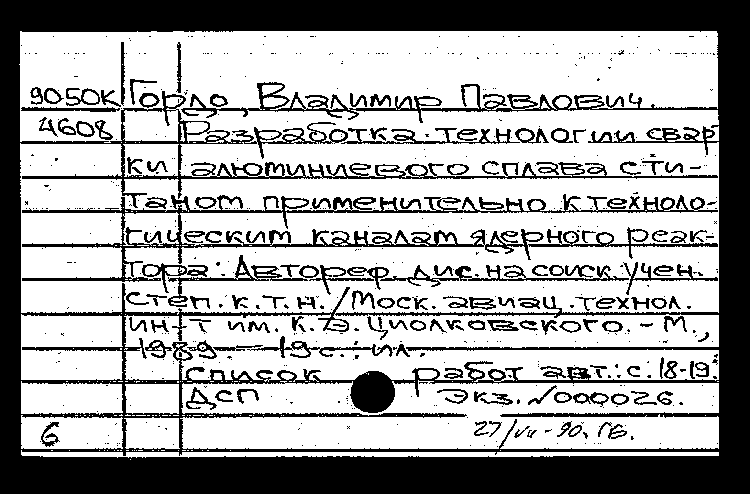 9050К Горло, Владимир Павлович.
4608 Разработка технологии свар
ки алюминиевого сплава с ти-
таном применительно к техноло-
гическим каналам ядерного реак-
тора: Автореф. дис. на соиск. учен.
степ. к.т.н. / Моск. авиац. технол.
ин-т им. К.Э. Циолковского. - М.,
1989. - 19 с.: ил.
Список работ авт.: с. 18-19.
ДСП Экз. №000026.
6 27/VII-90. ГБ.